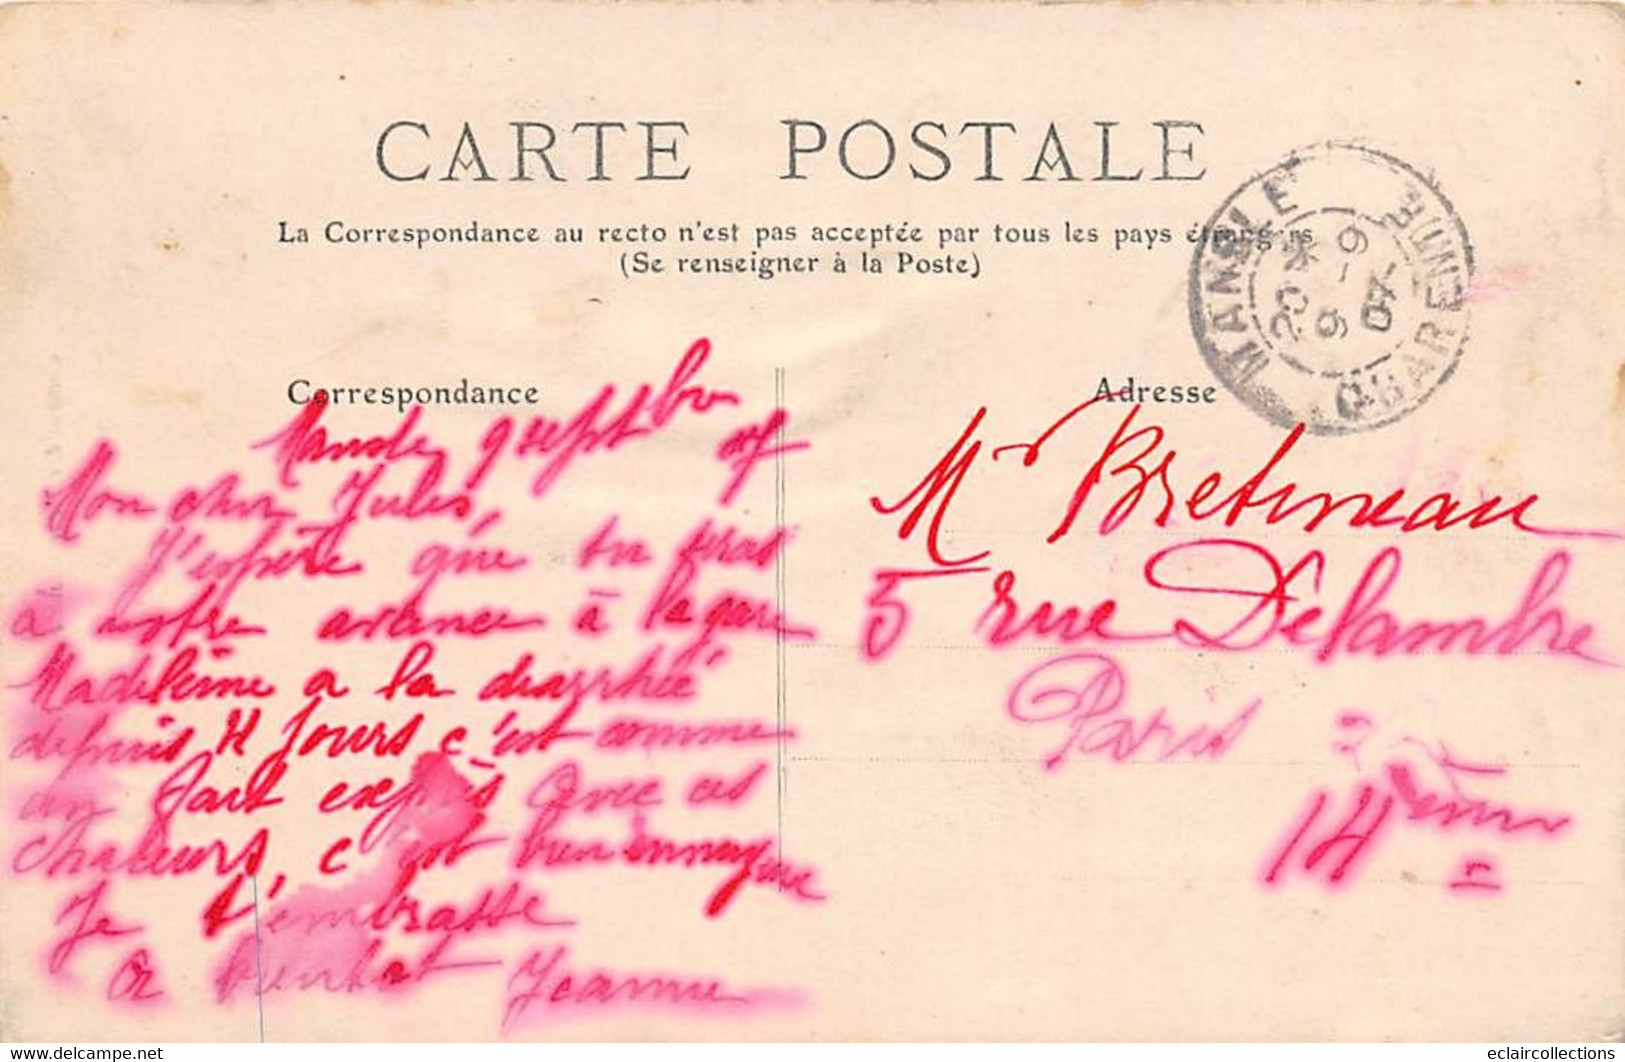 CARTE POSTALE
La Correspondance au recto n'est pas acceptée par tous les pays étrangers
(Se renseigner à la Poste)
MANSLE
CHARENTE
20 * 9 -9 07
Correspondance
Mansle 9 sept bre 07
Mon cher Jules,
J'espère que tu seras
à notre avance à la gare
Madeleine a la diarrhée
depuis 4 jours c'est comme
un fait exprès avec ces
chaleurs, c'est bien ennuyeux
Je t'embrasse
à bientôt Jeanne
Adresse
Mr Bretineau
5 rue Delambre
Paris =
14ème
=
eclaircollections